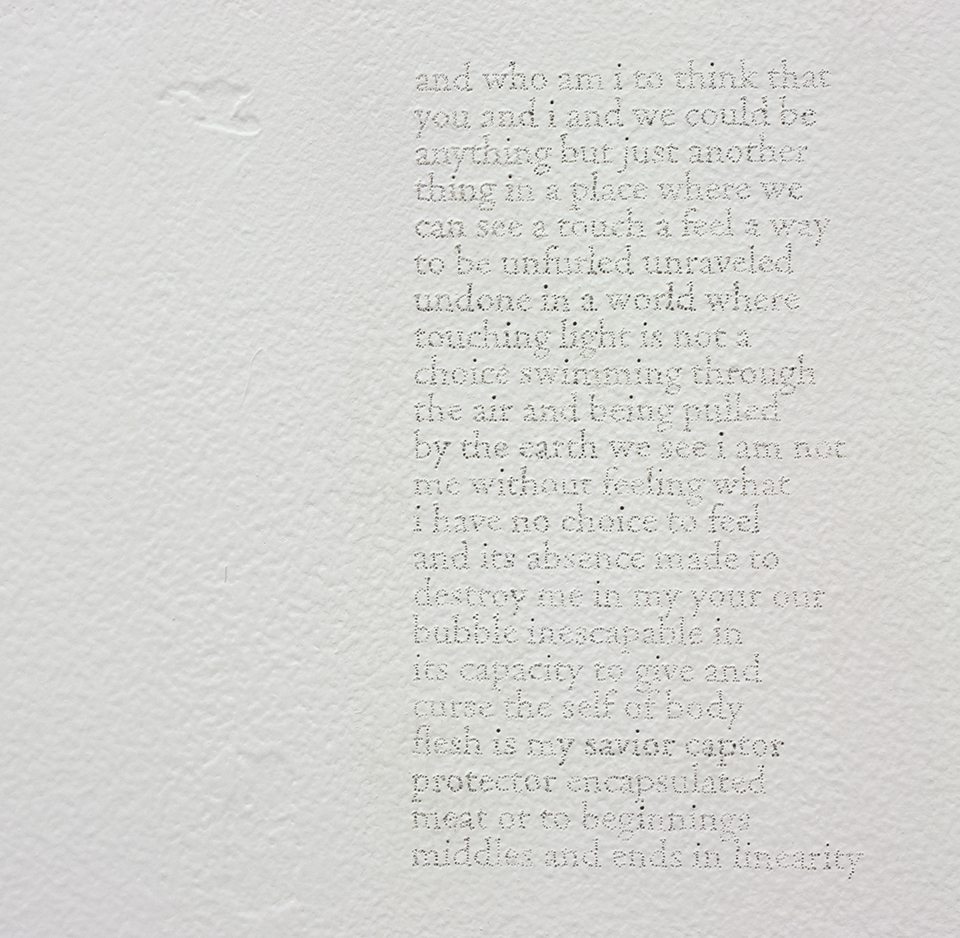 and who am i to think that
you and i and we could be
anything but just another
thing in a place where we
can see a touch a feel a way
to be unfurled unraveled
undone in a world where
touching light is not a
choice swimming through
the air and being pulled
by the earth we see i am not
me without feeling what
i have no choice to feel
and its absence made to
destroy me in my your our
bubble inescapable in
its capacity to give and
curse the self of body
flesh is my savior captor
protector encapsulated
meat or to beginnings
middles and ends in linearity